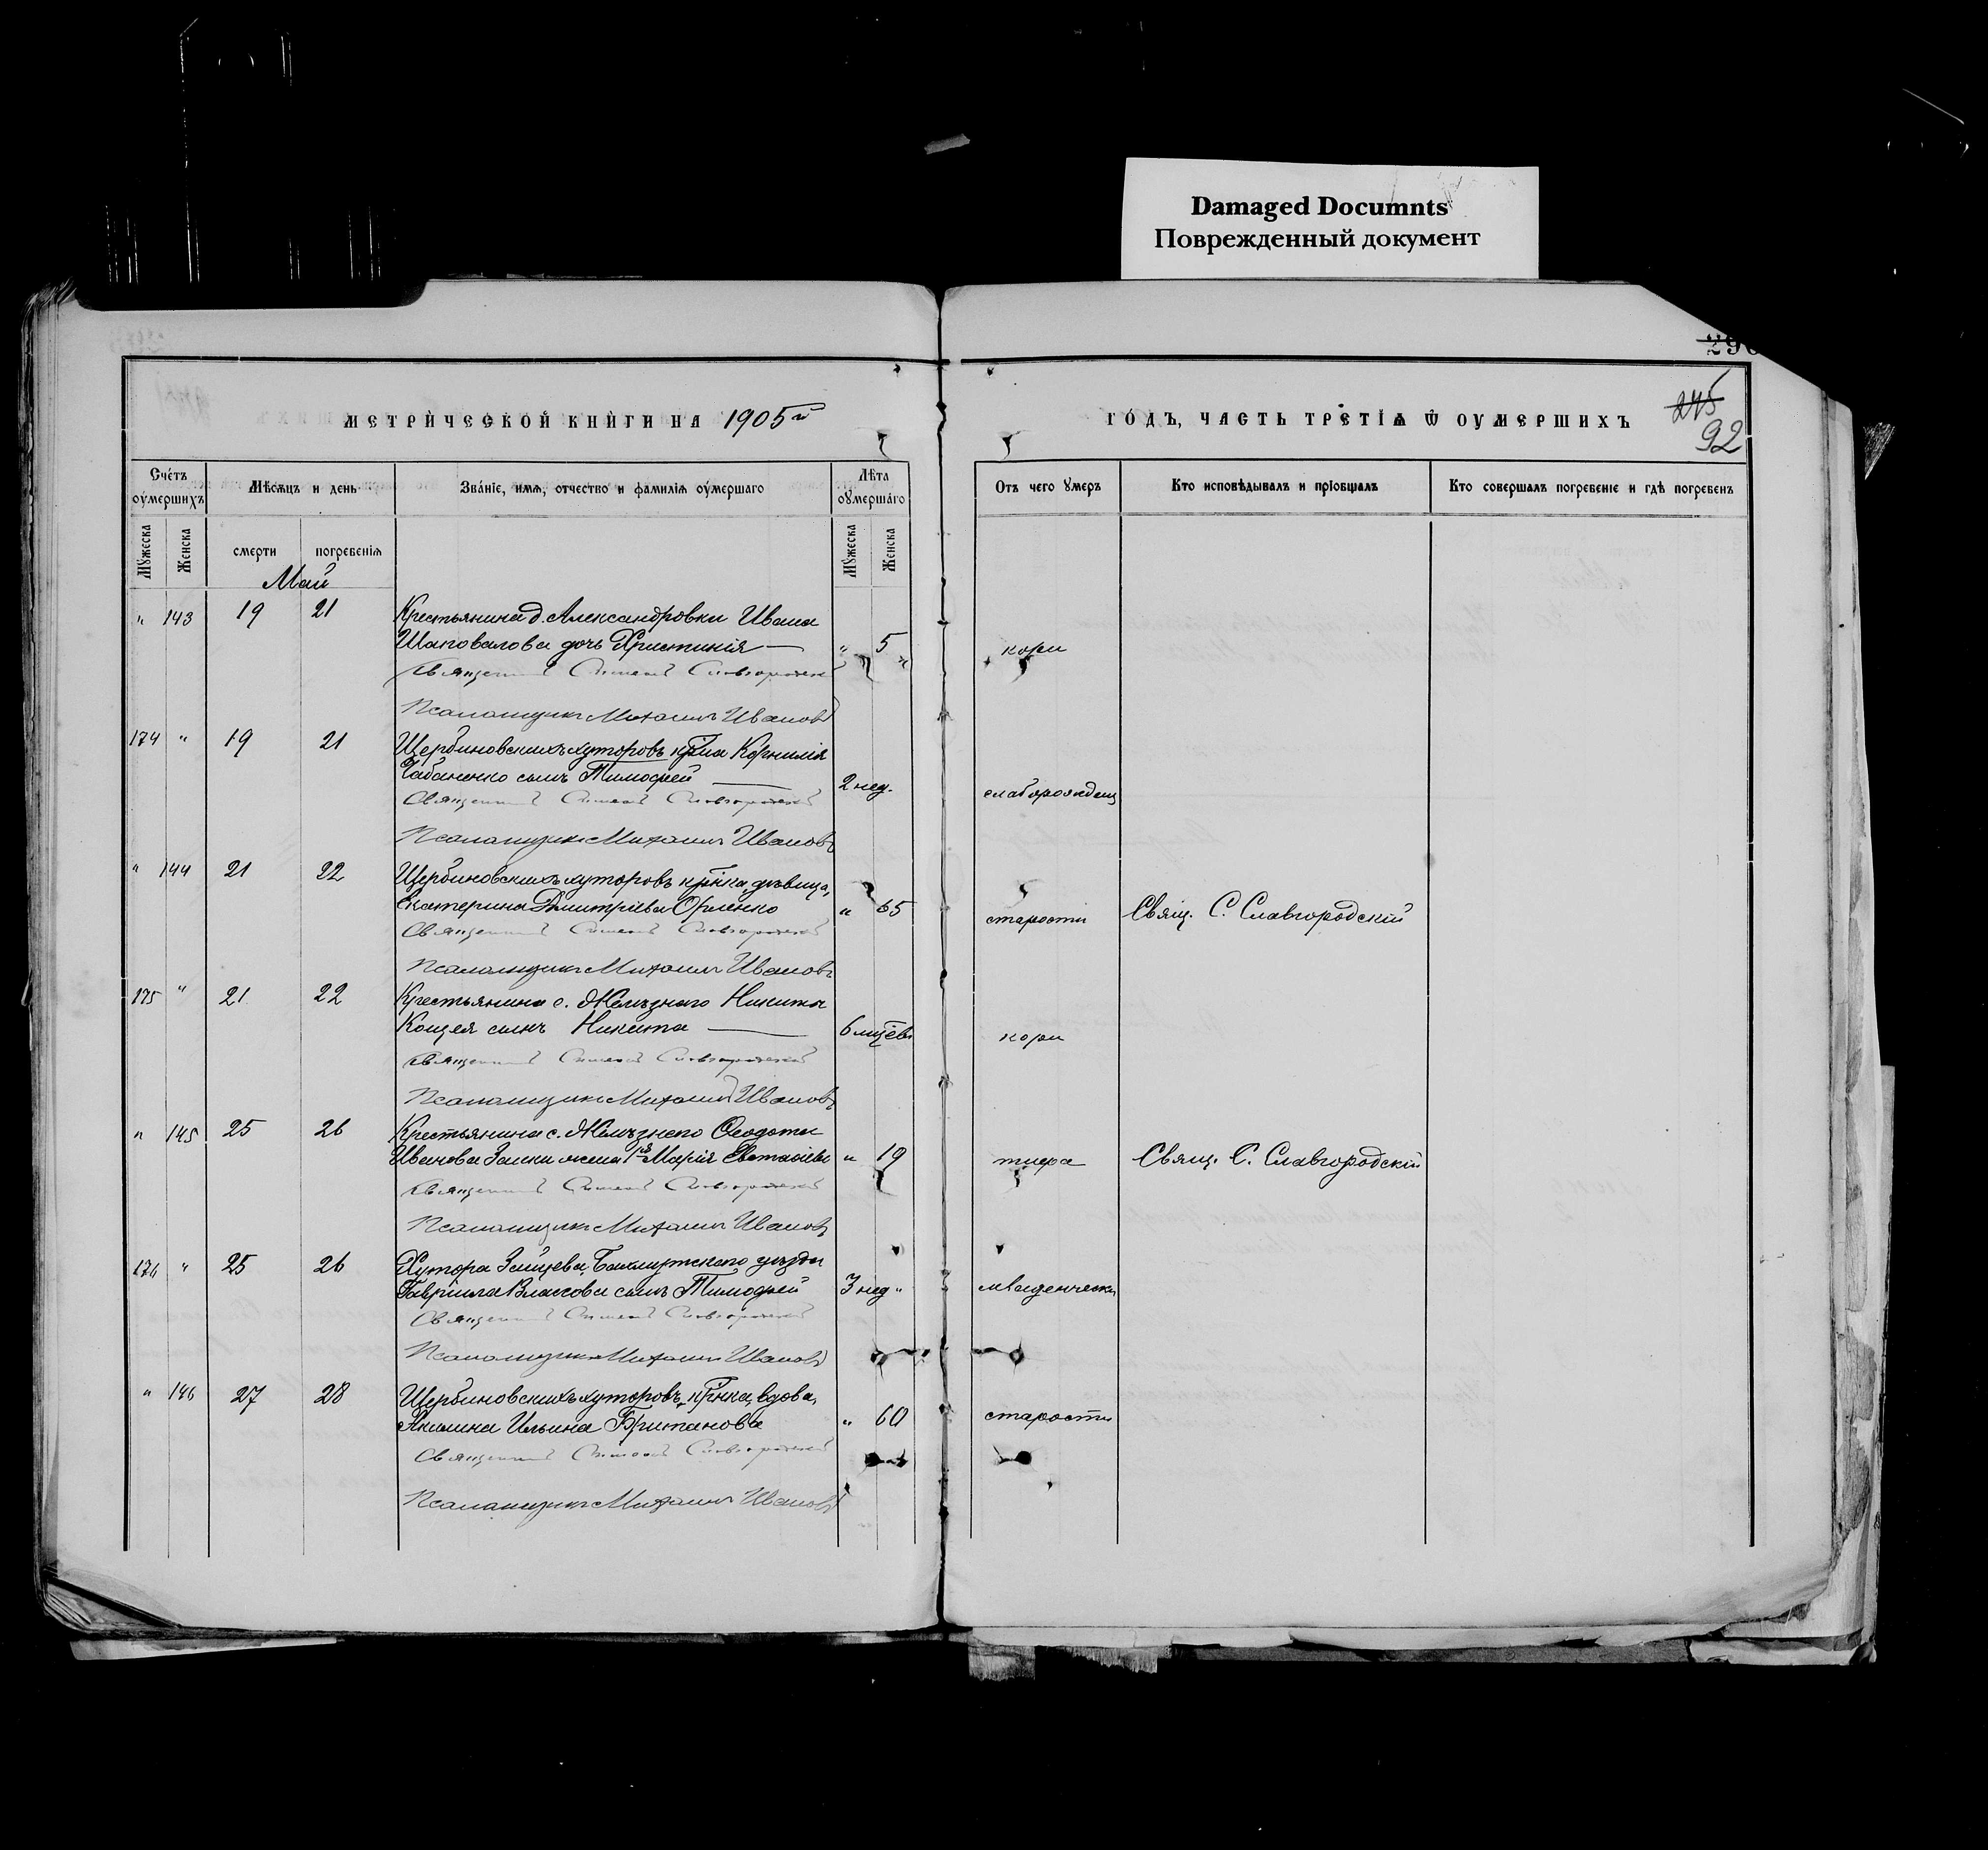 Damaged Documnts
Поврежденный документ
290
245
92
МЕТРИЧЕСКОЙ КНИГИ НА 1905й
ГОДЪ, ЧАСТЬ ТРЕТІѦ Ѿ ОУМЕРШИХЪ
Счетъ оумершихъ
Мѣсяцъ и день
Званіе, имя, отчество и фамилія оумершаго
Лѣта оумершаго
Отъ чего умеръ
Кто исповѣдывалъ и пріобщалъ
Кто совершалъ погребеніе и гдѣ погребенъ
Мужеска
Женска
смерти
погребенія
Мужеска
Женска
Май
" 143 19 21 Крестьянина д. Александровки Ивана
Шаповалова дочь Христинія " 5 кори
Священникъ Славгородскій
Псаломщикъ Михаилъ Ивановъ
174 " 19 21 Щербиновскихъ хуторовъ Корнилія
Чабаненко сынъ Тимофей 2 нед.
Священникъ Славгородскій
Псаломщикъ Михаилъ Ивановъ
" 144 21 22 Щербиновскихъ хуторовъ кр̃нка, дѣвица,
Екатерина Дмитріева Орленко " 65 старости Свящ. С. Славгородскій
Священникъ Славгородскій
Псаломщикъ Михаилъ Ивановъ
175 " 21 22 Крестьянина с. Желѣзнаго Никиты
Кощея сынъ Никита 6 кори
Священникъ Славгородскій
Псаломщикъ Михаилъ Ивановъ
" 145 25 26 Крестьянина с. Желѣзнаго Ѳеодота
Иванова Заики жена Марія " 19 тифа Свящ. С. Славгородскій
Священникъ Славгородскій
Псаломщикъ Михаилъ Ивановъ
176 " 25 26 Хутора Зайцева, Бахмутскаго уѣзда
Гавріила Власова сынъ Тимофей 3 нед. младенческ
Священникъ Славгородскій
Псаломщикъ Михаилъ Ивановъ
" 146 27 28 Щербиновскихъ хуторовъ, кр̃нка, вдова,
Акилина Ильина Британова " 60 старости
Священникъ Славгородскій
Псаломщикъ Михаилъ Ивановъ